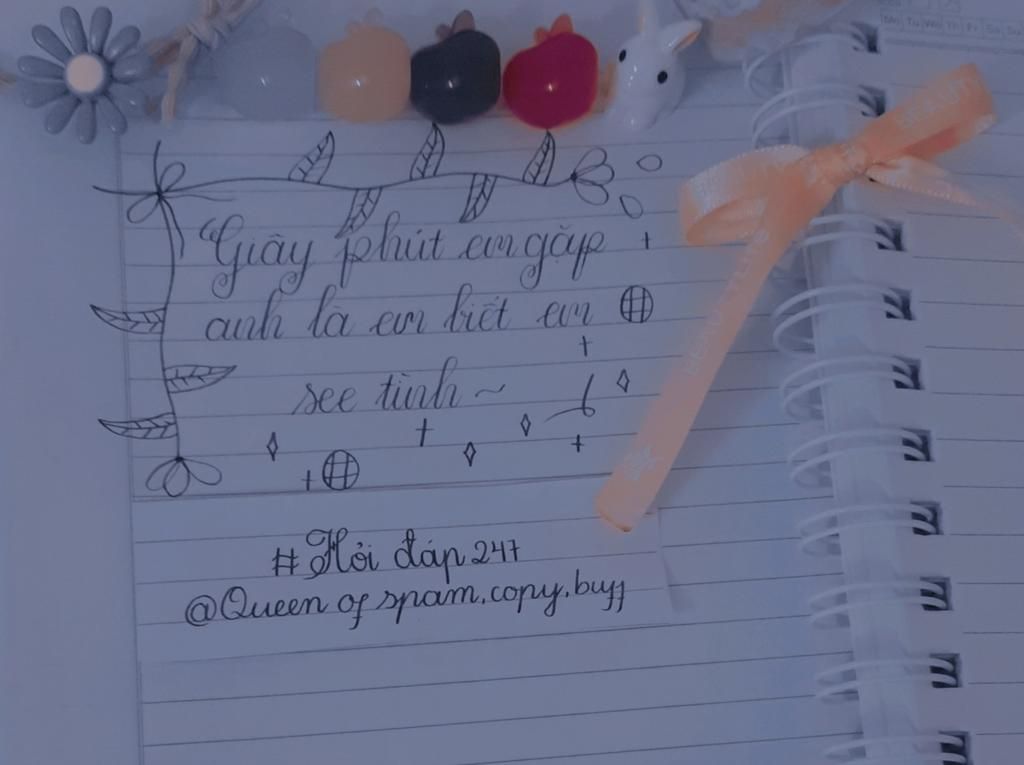 “Giây phút em gặp
anh là em biết em
see tình ~
#Hỏi đáp 247
@Queen of spam.copy.buff